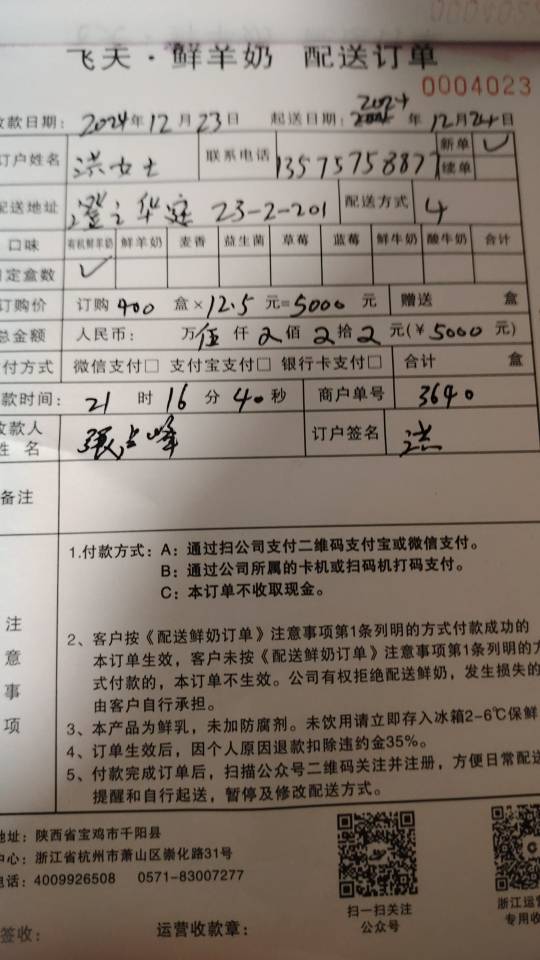 飞天·鲜羊奶 配送订单
0004023
收款日期：2024年12月23日 起送日期：2024年12月24日
订户姓名 洪女士 联系电话 13575758877 新单 ✓
续单
配送地址 23-2-201 配送方式 4
口味 有机鲜羊奶 鲜羊奶 麦香 益生菌 草莓 蓝莓 鲜牛奶 酸牛奶 合计
日定盒数 ✓
订购价 订购 400 盒×12.5元=5000元 赠送 盒
总金额 人民币： 万伍仟 佰 拾 元(￥5000元)
付方式 微信支付□ 支付宝支付□ 银行卡支付□ 合计 盒
款时间： 21时16分40秒 商户单号 3640
收款人姓名 张占峰 订户签名 洪
备注
注意事项
1.付款方式：A：通过扫公司支付二维码支付宝或微信支付。
B：通过公司所属的卡机或扫码机打码支付。
C：本订单不收取现金。
2、客户按《配送鲜奶订单》注意事项第1条列明的方式付款成功的
本订单生效，客户未按《配送鲜奶订单》注意事项第1条列明的方
式付款的，本订单不生效。公司有权拒绝配送鲜奶，发生损失的
由客户自行承担。
3、本产品为鲜乳，未加防腐剂。未饮用请立即存入冰箱2-6℃保鲜
4、订单生效后，因个人原因退款扣除违约金35%。
5、付款完成订单后，扫描公众号二维码关注并注册，方便日常配送
提醒和自行起送，暂停及修改配送方式。
地址：陕西省宝鸡市千阳县
中心：浙江省杭州市萧山区崇化路31号
电话：4009926508 0571-83007277
扫一扫关注
公众号
浙江运营
专用收
签收： 运营收款章：